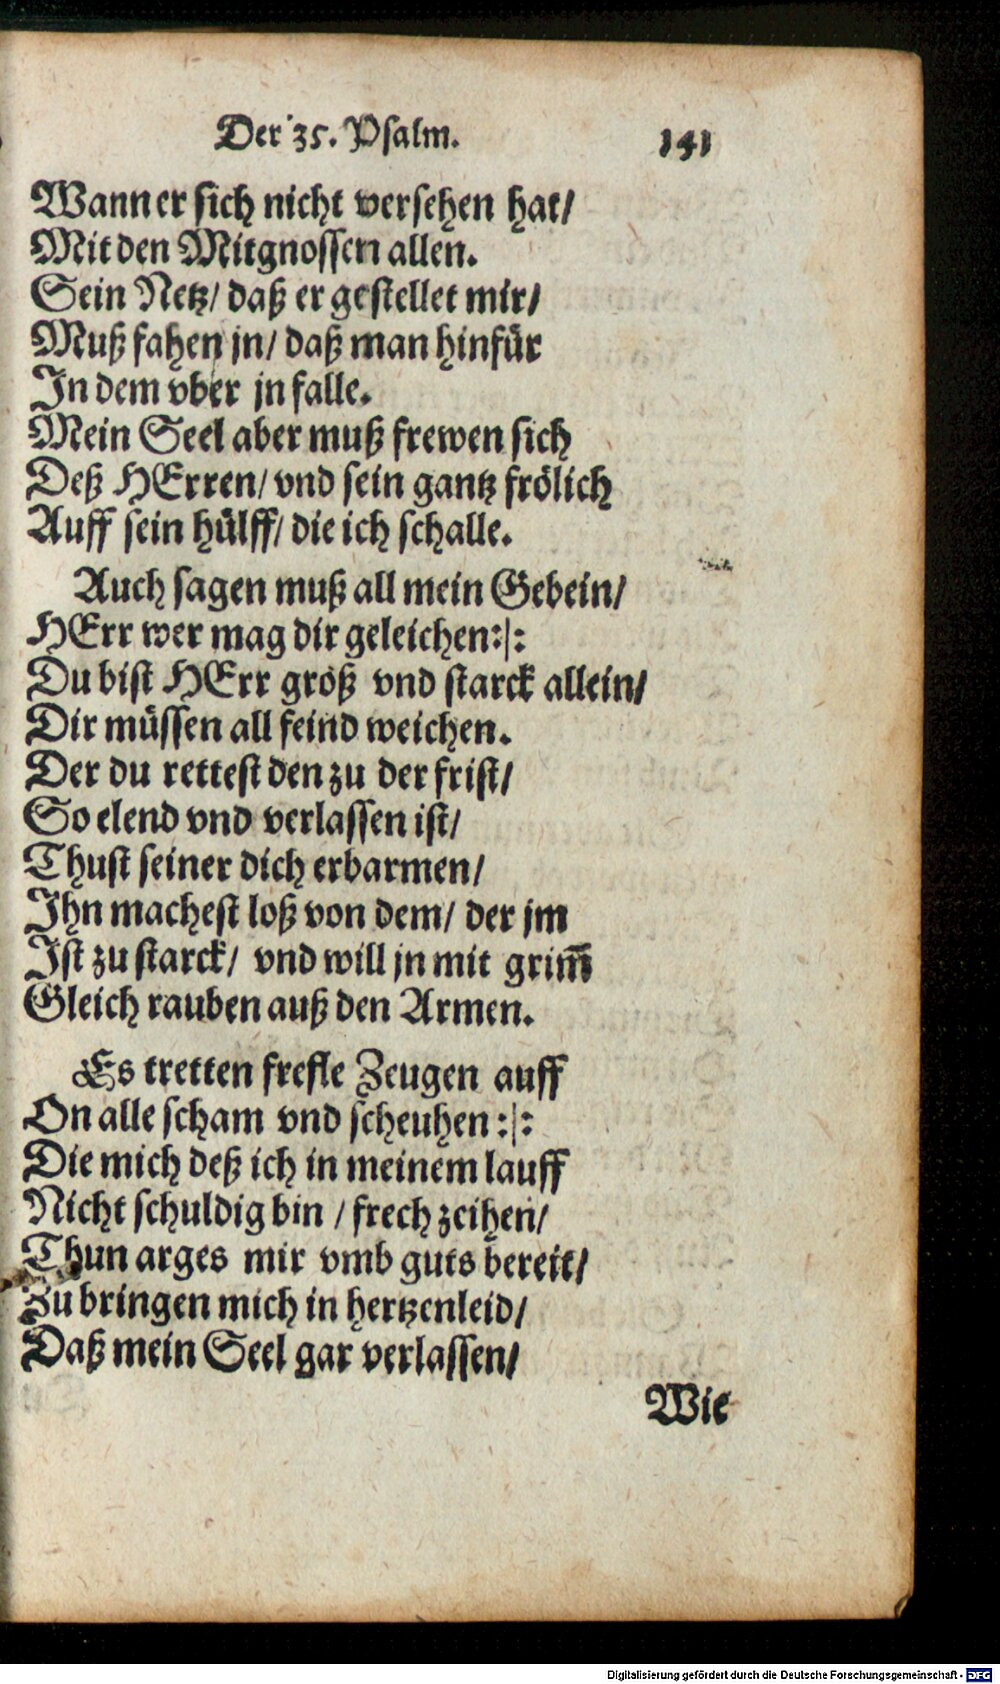 Der 35. Psalm. 141
Wann er sich nicht versehen hat/
Mit den Mitgnossen allen.
Sein Netz/ daß er gestellet mir/
Muß fahen jn/ daß man hinfür
In dem vber jn falle.
Mein Seel aber muß frewen sich
Deß HErren/ vnd sein gantz frölich
Auff sein hülff/ die ich schalle.
Auch sagen muß all mein Gebein/
HErr wer mag dir geleichen:|:
Du bist HErr groß vnd starck allein/
Dir müssen all feind weichen.
Der du rettest den zu der frist/
So elend vnd verlassen ist/
Thust seiner dich erbarmen/
Ihn machest loß von dem/ der jm
Ist zu starck/ vnd will jn mit grim̅
Gleich rauben auß den Armen.
Es tretten frefle Zeugen auff
On alle scham vnd scheuhen:|:
Die mich deß ich in meinem lauff
Nicht schuldig bin / frech zeihen/
Thun arges mir vmb guts bereit/
Zu bringen mich in hertzenleid/
Daß mein Seel gar verlassen/
Wie
Digitalisierung gefördert durch die Deutsche Forschungsgemeinschaft - DFG